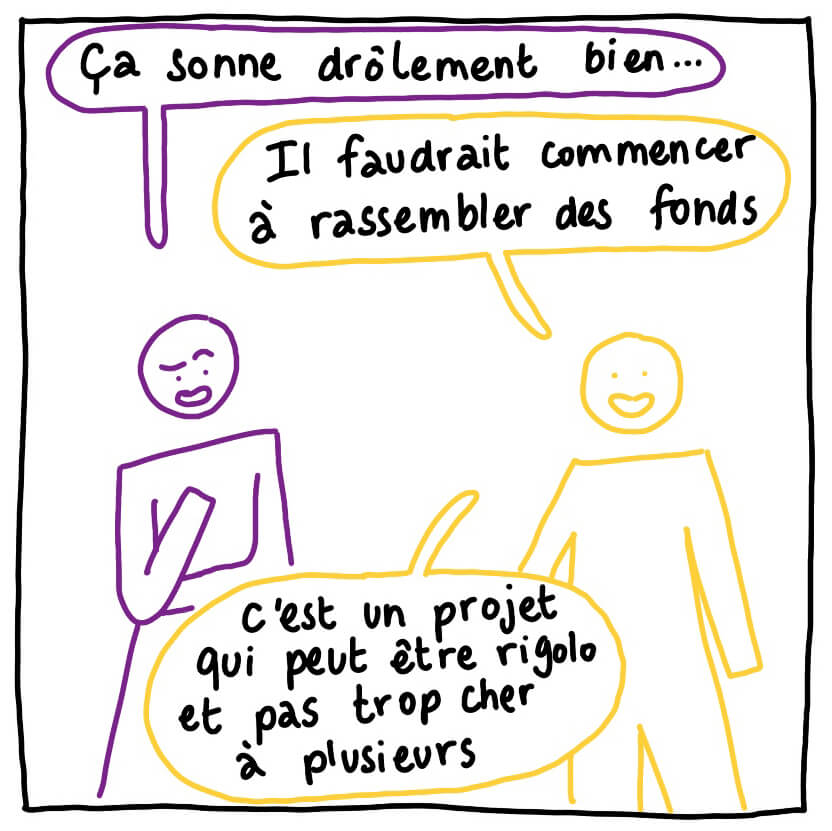 Ça sonne drôlement bien...
Il faudrait commencer
à rassembler des fonds
c'est un projet
qui peut être rigolo
et pas trop cher
à plusieurs